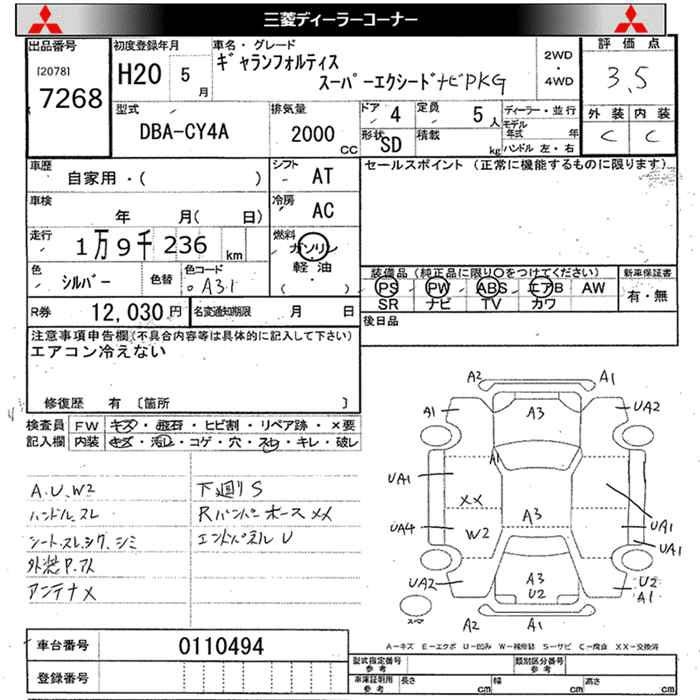 三菱ディーラーコーナー
出品番号 初度登録年月 車名・グレード 2WD・4WD 評価点
[2078]
7268
H20 5月
ギャランフォルティス
スーパーエクシードナビPKG
3.5
型式 DBA-CY4A
排気量 2000 CC
ドア 4 定員 5人
形状 SD 積載 kg
ディーラー・並行
モデル年式 年
ハンドル 左・右
外装 内装
C C
車歴 自家用・( )
シフト AT
セールスポイント (正常に機能するものに限ります)
車検 年 月( 日)
冷房 AC
走行 1万9千236km
燃料 ガソリン
軽油
( ・ )
色 シルバー 色替 色コード A31
装備品(純正品に限り○をつけてください) 新車保証書
PS PW ABS エアB AW 有・無
SR ナビ TV カワ
R券 12,030円 名変通知期限 月 日
後日品
注意事項申告欄(不具合内容等は具体的に記入して下さい)
エアコン冷えない
修復歴 有 〔箇所 〕
検査員 FW キズ・飛石・ヒビ割・リペア跡・×要
記入欄 内装 キズ・汚し・コゲ・穴・スレ・キレ・破レ
A.U.W2 下廻りS
ハンドルスレ RバンパーホースXX
シートスレ,シワ,シミ エンドパネルU
外装P.アス
アンテナX
A2 A1
A1 A3 UA2
A1
UA1
XX
UA4 W2 A3 UA1
UA1
UA2 A3 U2
U2 A1
スペア
A2 A1
A=キズ E=エクボ U=凹み W=補修跡 S=サビ C=腐食 XX=交換済
車台番号 0110494
登録番号
型式指定番号 参考 類別区分番号 参考
車庫証明用 参考 長さ cm 幅 cm 高さ cm